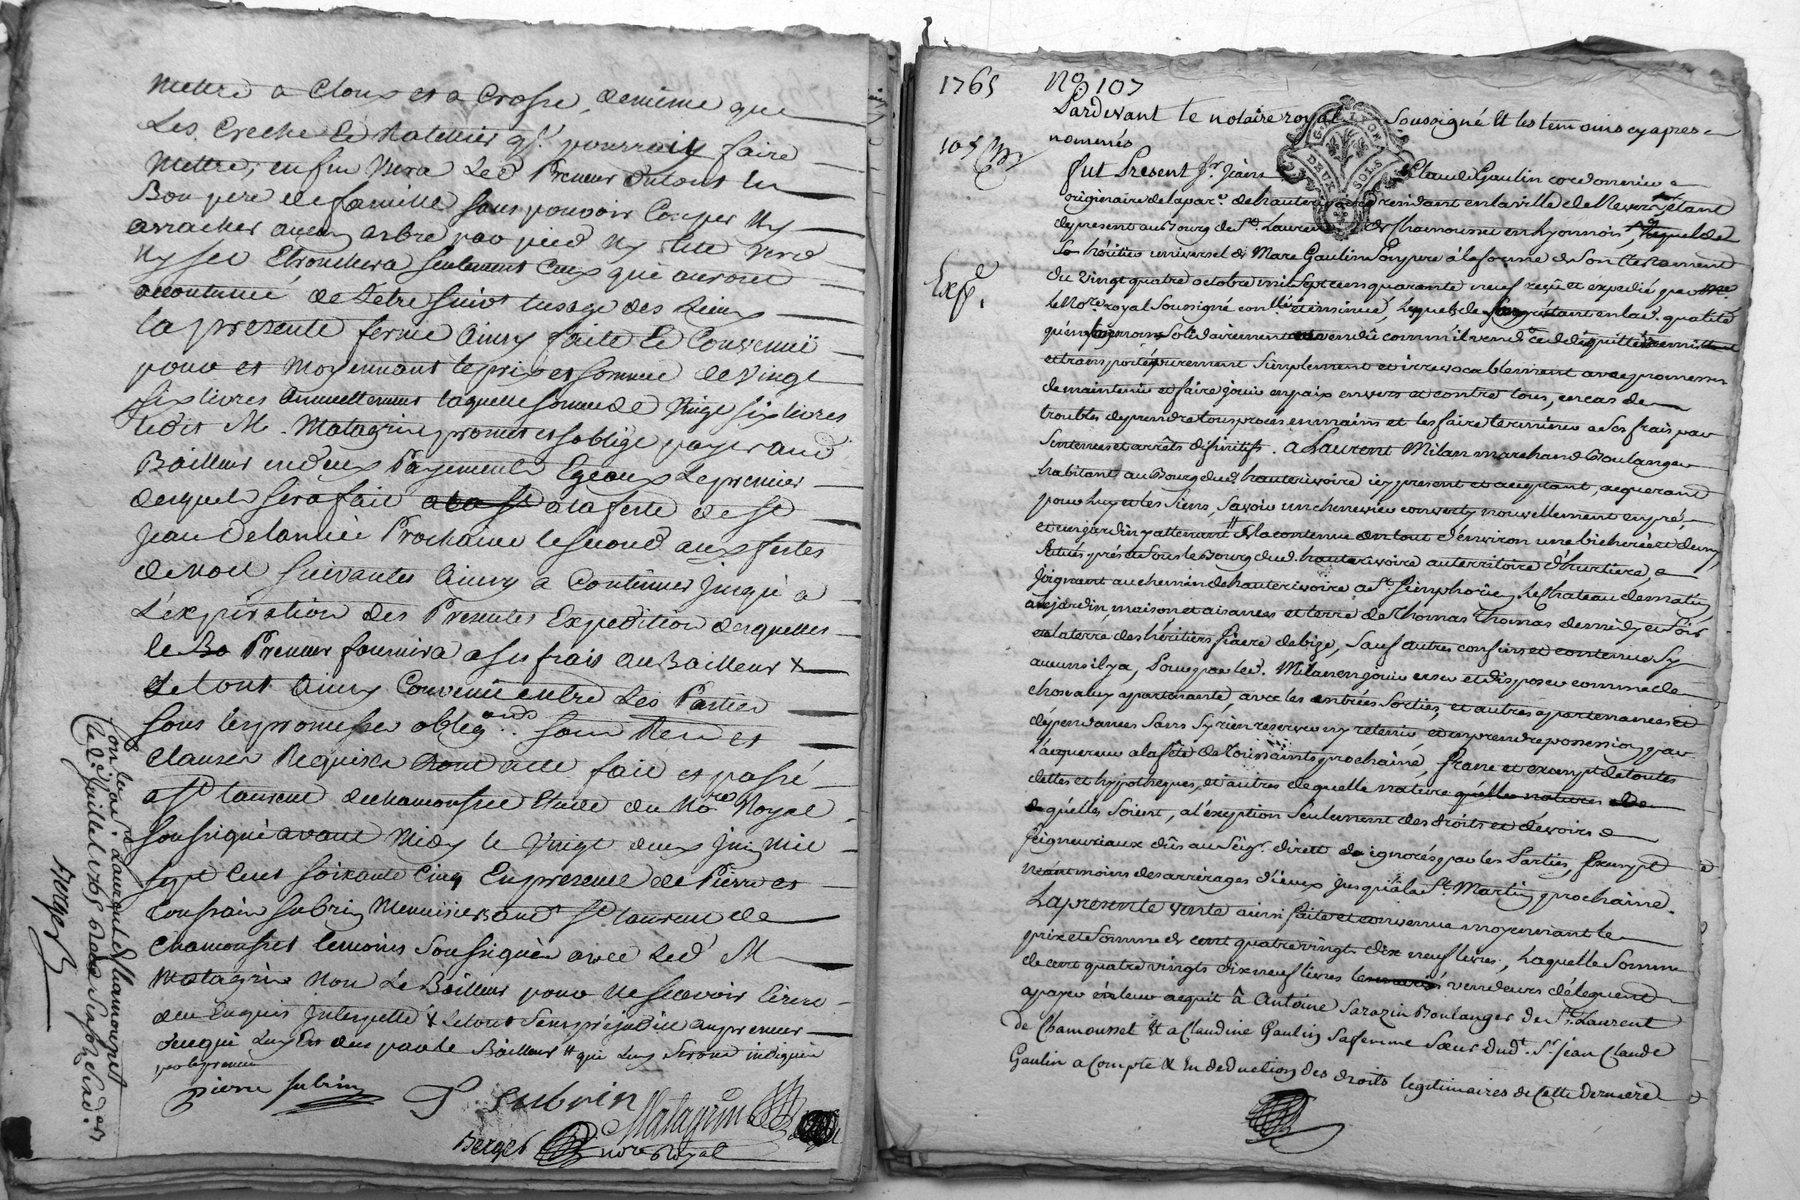 mettre a Cloux et a Crosse, demême que
Les Creche Et Ratellier qu'il pourrait faire
mettre, enfin Usera Led. Preneur Dutout En
Bon pere de famille sans pouvoir Couper Ny
arracher aucun arbre par pied Ny tete Verd
Ny sec Ebranchera seulement Ceux que auront
accoutumé de Letre suivt lusage des Lieux
la presente ferme ainsy faite Et Convenüe
pour et moyennant le prix et somme de Vingt
six livres annuellement laquelle somme de Vingt six livres
ledit M. Matagrin promet et soblige payer aud.
Bailleur en deux Payements Egeaux Le premier
desquels sera fait a la st a la feste de st
Jean De lannée Prochaine le second aux festes
de Noel suivantes ainsy a Continuer jusqu'a
L'expiration des Presentes Expedition desquelles
le Ba Preneur fournira a ses frais au Bailleur x
Le tout ainsy Convenu entre Les Parties
sous les promesses obligons. soum. Ren. et
Clauses Requises dont acte fait et passé
a st laurent de chamousset Etude du Nore. Royal
soussigné avant Midy le Vingt deux Juin Mil
sept Cent soixante Cinq En presence de Pierre et
Subrin Menuisiers aud. st laurent de
Chamousset temoins soussignés avec Led. M.
Matagrin Non Le Bailleur pour ne scavoir Ecrire
de ce Enquis Interpellé x Le tout sans prejudice au preneur
de ce qui Luy Est deu par le Bailleur # que Luy Seront indiqués
par le preneur
pierre subrin
P Subrin
Matagrin
Berger nore Royal
Con.lé a St Laurent de Chamousset
Le 2e Juillet 1765 Reçu Six s. Six d.
Berger
1765 No 107
Pardevant le notaire royal Soussigné Et les temoins cy apres
nommés
fut Present Sr. Jean Claude Gaulin cordonnier
originaire de la par. de hauterivoire residant en la ville de Nevers, étant
de present au Bourg de St. Laurent de Chamousset en Lyonnois, lequel de
héritier universel de Marc Gaulin Son pere a la forme de Son testament
du vingt quatre octobre mil Sept cens quarante neuf reçu et expedié par Me.
le Nore. royal Soussigné conllé et insinué, Lequel de Son gré étant en lad. qualité
qu'en Son nom Solidairement a vendu comme il vend cede quitte remet
et transporte purement Simplement et irrevocablement avec promesse
de maintenir et faire jouir en paix envers et contre tous, en cas de
troubles de prendre tous procès en mains et les faire terminer a Ses frais par
Sentences et arrêts définitifs. a Laurent Milan marchand Boulanger
habitant au Bourg dud. hauterivoire icy present et acceptant, acquerant
pour Luy et les Siens, Savoir un chenevier converty nouvellement en pré,
et un jardin y attenant # de la contenue en tout d'environ une bicherée et demy,
Situés près et Sous le Bourg dud. hauterivoire au territoire d'hurtiere,
Joignant au chemin de hauterivoire a St. Simphorien, Le Chateau de matin,
a le jardin, maison et aisances et terre de Thomas Thomas de midy et Soir
et la terre des héritiers fiacre de bize, Sauf autres confins et contenue Sy
aucuns il y a, Pour par led. Milan en jouir user et disposer comme de
chose a luy apartenante, avec les entrées Sorties, et autres apartenances et
dépendances Sans Sy rien reserver ny retenir, et en prendre possession par
L'acquereur a la fête de Toussaints prochaine, franc et exempt de toutes
dettes et hypotheques, et autres de quelle nature qu'elles natures
qu'elles Soient, a l'exeption Seulement des droits et devoirs
Seigneuriaux dûs au Seigr. direct ignorés par les Parties, Exempt
neantmoins des arrerages d'iceux jusqu'a la St. Martin prochaine.
La presente vente ainsi faite et convenue moyennant le
prix et Somme de cent quatre vingt dix neuf livres, Laquelle Somme
de cent quatre vingts dix neuf livres vendeurs deleguent
a payer en leur acquit a Antoine Sarazin Boulanger de St. Laurent
de Chamousset Et a Claudine Gaulin Sa femme Sœur dud. Sr. Jean Claude
Gaulin a Compte & En deduction des droits legitimaires de Cette derniere
Exp.
G. LYON
DEUX SOLS